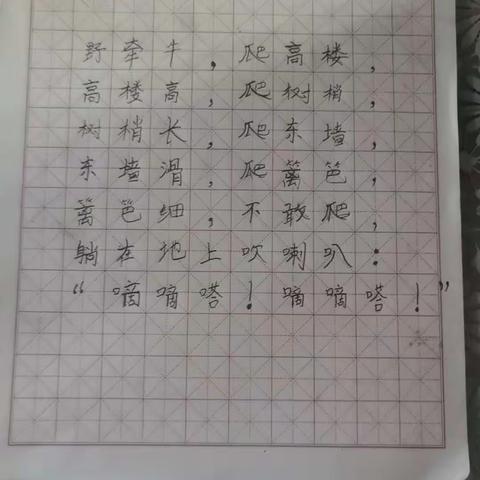 野牵牛，爬高楼，
高楼高，爬树梢，
树梢长，爬东墙，
东墙滑，爬篱笆，
篱笆细，不敢爬，
躺在地上吹喇叭：
“嘀嘀嗒！嘀嘀嗒！”